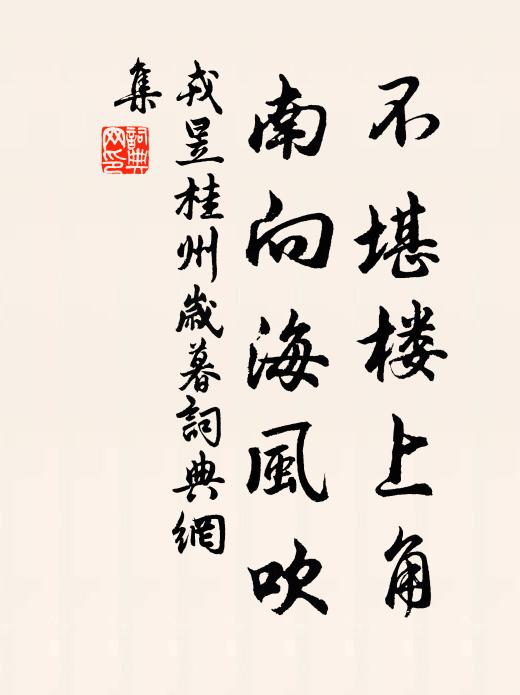 不堪楼上角
南向海風吹
戎昱桂州歲暮詞典網
集
詞典網印